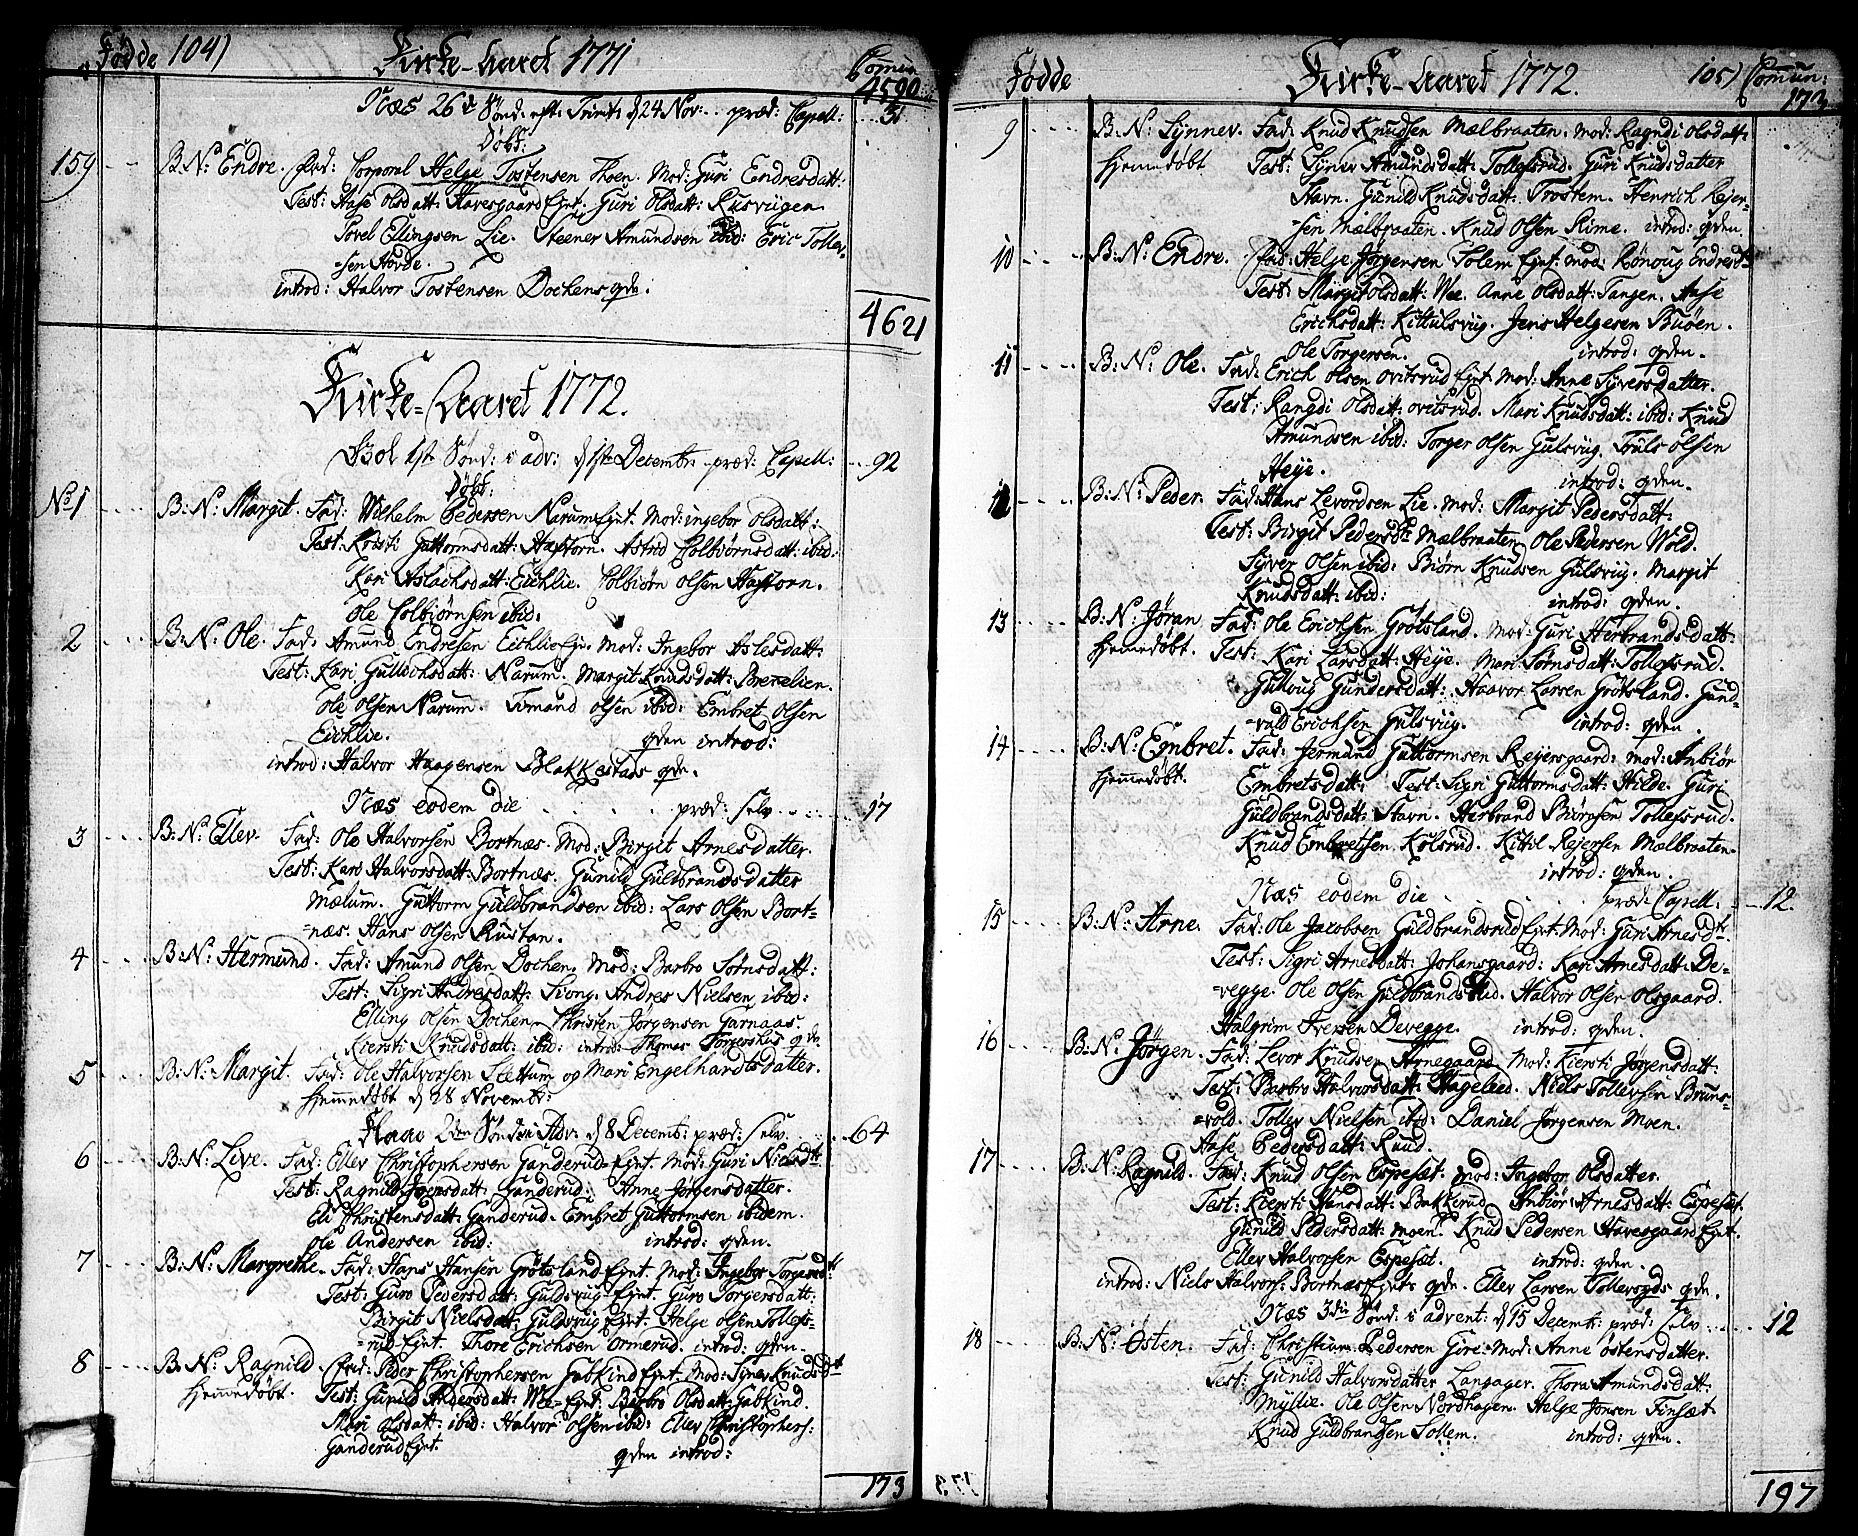 Fødde 104) Kirke-Aaret 1771 Comun:
4590
Næs 26de Sönd: eft: Trinit: d 24 Nov: .. præd: Capell: ... 31
Døbt:
159 B: N: Endre. Fad: Corporal Helge Tostensen Thoen. Mod: Guri Endresdatt:
Test: Aase Olsdatt: Havesgaard Eynt. Guri Olsdatt: Rusviigen
Povel Ellingsen Lie. Steener Amundsen ibid: Eric Tollev-
=sen Hovde.
introd: Halvor Tostensen Dochens qdv.
4621
Kirke-Aaret 1772.
Gol 1ste Sönd: i adv: d 1ste Decembr: præd: Capell: ... 92
Døbt:
No 1 B: N: Margit. Fad: Wilhelm Pedersen Narum Eynt. Mod: ingebor Olsdatt:
Test: Kristi Guttormsdatt: Haftorn. Astrid Colbiørnsdatt: ibid:
Kari Aslachsdatt: Eichlie. Colbiørn Olsen Haftorn.
Ole Colbiørnsen ibid:
2 B: N: Ole. Fad: Amund Endresen Eichlie Ejn. Mod: Ingebor Aslesdatt:
Test: Kari Gulleichsdatt: Narum. Margit Knudsdatt: Brenelien.
Ole Olsen Narum. Tomand Olsen ibid: Embret Olsen
Eichlie. qden introd:
introd: Halvor Haagensen Blakkestads qdv.
Næs eodem die præd: selv ..... 17
3 B: N: Ellev. Fad: Ole Halvorsen Bortnæs. Mod: Birgit Arnesdatter.
Test: Kari Halvorsdatt: Bortnæs. Gunild Guldbrandsdatter
Mælum. Guttorm Guldbrandsen ibid: Lars Olsen Bort=
=næs. Hans Olsen Rustan.
4 B: N: Hermund. Fad: Amund Olsen Dochen. Mod: Barbro Sørnsdatt:
Test: Sigri Andresdatt: Liong. Andres Nielsen ibid:
Elling Olsen Dochen. Christen Jørgensen Garnaas.
Kiersti Knudsdatt: ibid: introd: Thomas Torgershus qdv
5 B: N: Margit. Fad: Ole Halvorsen Slettum og Mari Engelhardtsdatter.
hjemmedøbt d 28 Novembr:
Flaae 2den Sönd: i Adv: d 8 Decemb: præd: selv. ... 64
6 B: N: Live. Fad: Ellev Christophersen Ganderud Eynt. Mod: Guri Nielsdtr
Test: Ragnild Joensdatt: Ganderud. Anne Jørgensdatter.
Eli Christensdatt: Ganderud. Embret Guttormsen ibidem.
Ole Andersen ibid: introd: qden.
7 B: N: Margrethe. Fad: Hans Hansen Grøtsland Eynt. Mod: Ingebor Torgersdtr
Test: Guro Pedersdatt: Guldsvug Eynt. Guro Torgersdatt:
Birgit Nielsdatt: Guldsvug Eynt. Helge Olsen Tollefs=
=rud Eynt. Thore Erichsen Ormerud. introd: qden.
8 B: N: Ragnild. Fad: Peder Christophersen Gakind Eynt. Mod: Synev Knudsdtr
hjemmedøbt. Test: Gunild Andersdatt: Wee Eynt. Barbro Olsdatt: Gakind.
Mari Olsdatt: ibid: Halvor Olsen ibid: Ellev Christophers:
Ganderud Eynt. qden introd:
173
Fødde Kirke-Aaret 1772. 105) Comun:
173
9 B: N: Synnev. Fad: Knud Knudsen Mælbraaten. Mod: Ragndi Olsdatt:
hjemmedøbt Test: Synev Amundsdatt: Tollefsrud. Guri Knudsdatter
Stavn. Gunild Knudsdatt: Trostem. Henrich Rejer-
=sen Mælbraaten. Knud Olsen Rime. introd: qden.
10 B: N: Endre. Fad: Helge Jørgensen Solem Eynt. Mod: Rønoug Endresdtr
Test: Margit Olsdatt: Wee. Anne Olsdatt: Tangen. Aase
Erichsdatt: Kittulsvug. Jens Helgesen Buøen.
Ole Torgersen. introd: qden.
11 B: N: Ole. Fad: Erich Olsen Ovitsrud Eynt. Mod: Anne Syversdatter.
Test: Rangdi Olsdatt: Ovitsrud. Mari Knudsdatt: ibid: Knud
Amundsen ibid: Torger Olsen Gulsvug. Truls Olsen
Heye. introd: qden.
12 B: N: Peder. Fad: Hans Levordsen Lie. Mod: Margit Pedersdatt:
Test: Birgit Pedersdtr Mælbraaten. Ole Pedersen Wold.
Syver Olsen ibid: Biørn Knudsen Gulsvug. Margit
Knudsdatt: ibid: introd: qden.
13 B: N: Jøran Fad: Ole Erichsen Grøtsland. Mod: Guri Herbrandsdatt:
hjemmedøbt. Test: Kari Larsdatt: Heye. Mari Sørnsdatt: Tollefsrud.
Gulloug Gundersdatt: Haavor Larsen Grøtsland. Gund-
=vald Erichsen Gulsvug. introd: qden.
14 B: N: Embret. Fad: Hermund Guttormsen Rejersgaard: Mod: Anbiør
hjemmedøbt. Embretsdatt: Test: Sigri Guttormsdatt: Hilde. Guri
Guldbrandsdatt: Stavn. Herbrand Biørnsen Tollefsrud.
Knud Embretsen Kolsrud. Kittil Rejersen Mælbraaten.
introd: qden.
Næs eodem die præd: Capell: ... 12.
15 B: N: Arne. Fad: Ole Jacobsen Guldbrandsrud Eynt. Mod: Guri Arnesdtr
Test: Sigri Arnesdatt: Johansgaard: Kari Arnesdatt: De=
=vegge. Ole Olsen Guldbrandsrud. Halvor Olsen Olsgaard.
Halgrim Iversen Devegge. introd: qden.
16 B: N: Jørgen. Fad: Levor Knudsen Arnegaard Mod: Kiersti Jørgensdatt:
Test: Barbro Halvorsdatt: Hageleed. Niels Tollevsen Bruns=
=vold. Tollev Nielsen ibid: Daniel Jørgensen Moen.
Aase Pedersdatt: Ruud.
17 B: N: Ragnild. Fad: Knud Olsen Espeset. Mod: Ingebor Olsdatter.
Test: Kiersti Hansdatt: Bakkerud. Anbiør Arnesdatt: Espeset.
Gunild Pedersdatt: Moen. Knud Pedersen Havesgaard Eynt.
Ellev Halvorsen Espeset. introd: qden.
introd: Niels Halvors: Bortnæs Eynts qdv. Ellev Larsen Tollevsrds qdv.
Næs 3die Sönd: i advent. d 15 Decemb: præd: selv .... 12
18 B: N: Østen. Fad: Christian Pedersen Giri. Mod: Anne Østensdatter.
Test: Gunild Halvorsdatter Langager. Thora Amundsdatt:
Myllie. Ole Olsen Nordhagen. Helge Jonsen Finsæt
Knud Guldbrandsen Sollem. introd: qden.
197